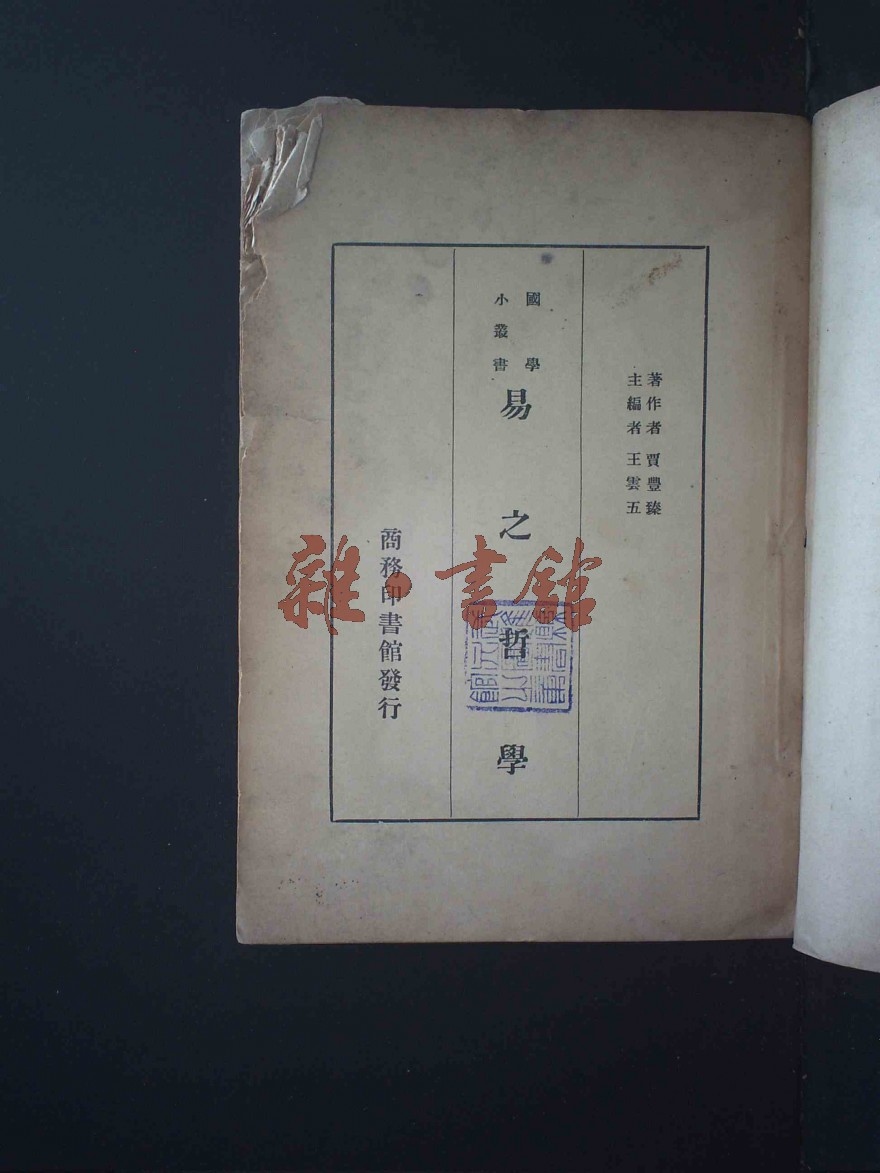 著作者 賈豐臻
主編者 王雲五
國學
小叢書
易之哲學
商務印書館發行
雜·書館